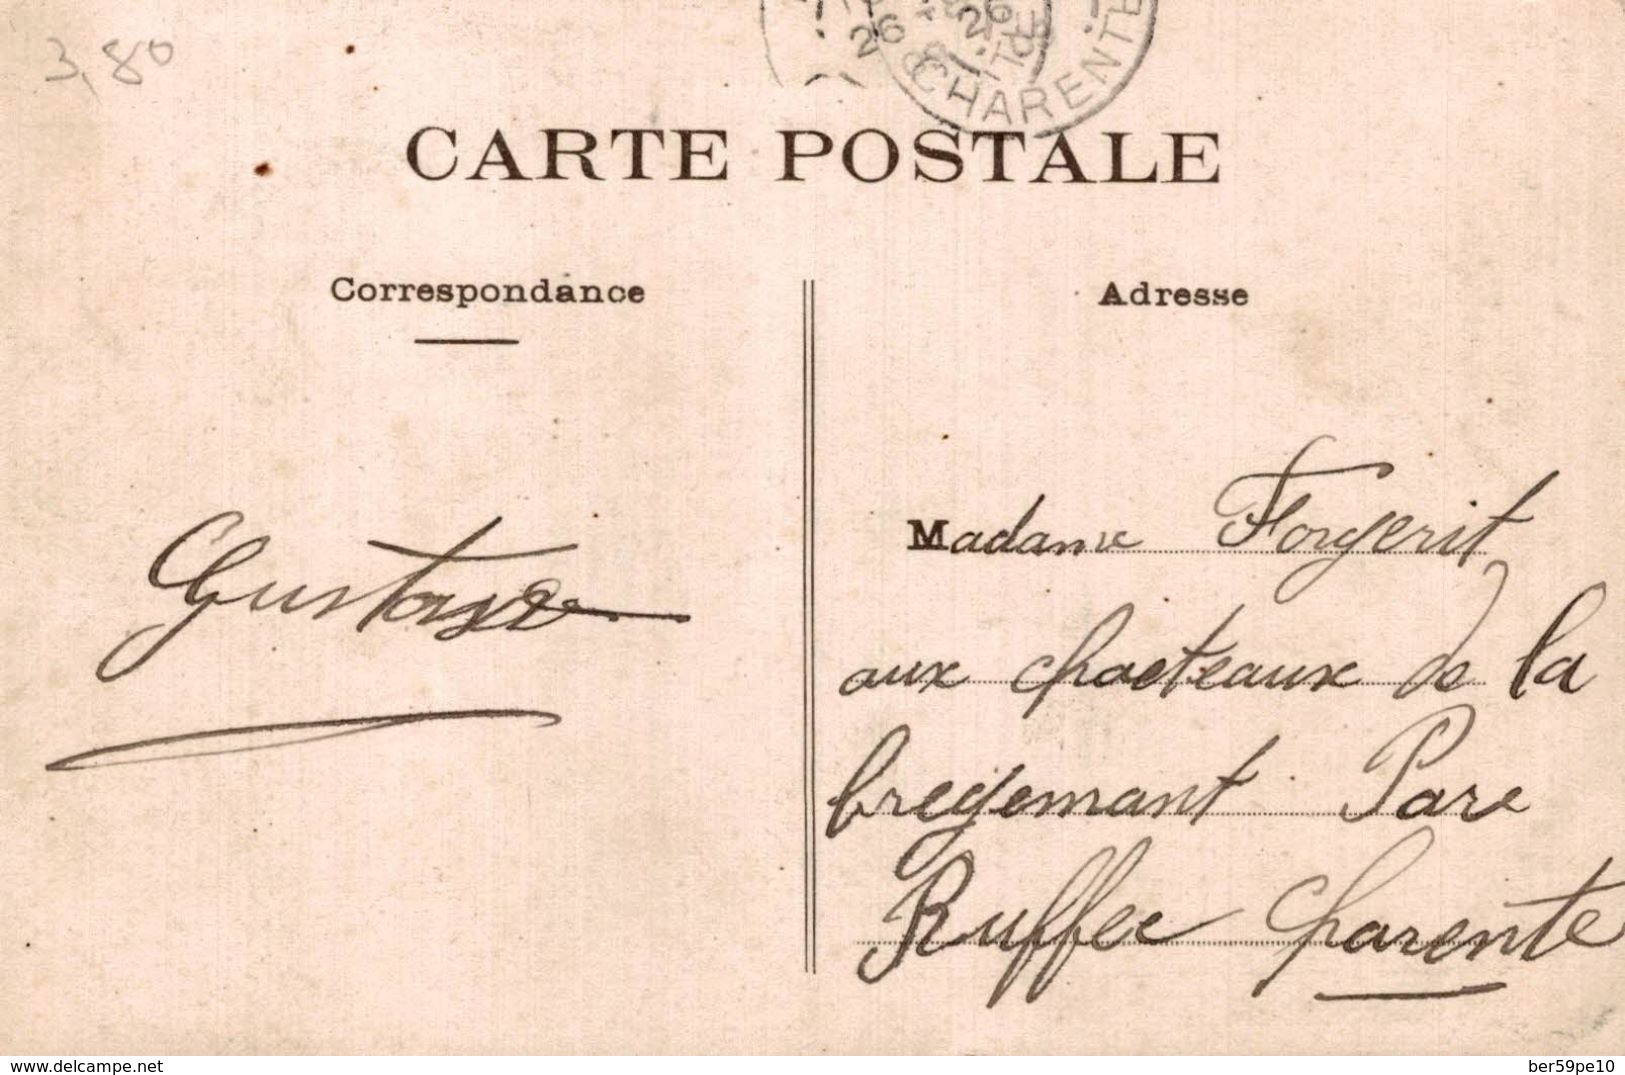 3,80
26
26
CHARENTE
CARTE POSTALE
Correspondance
Adresse
Gustave
Madame Forgerit
aux chacteaux de la
bregemant Pare
Ruffec Charente
www.delcampe.net
ber59pe10